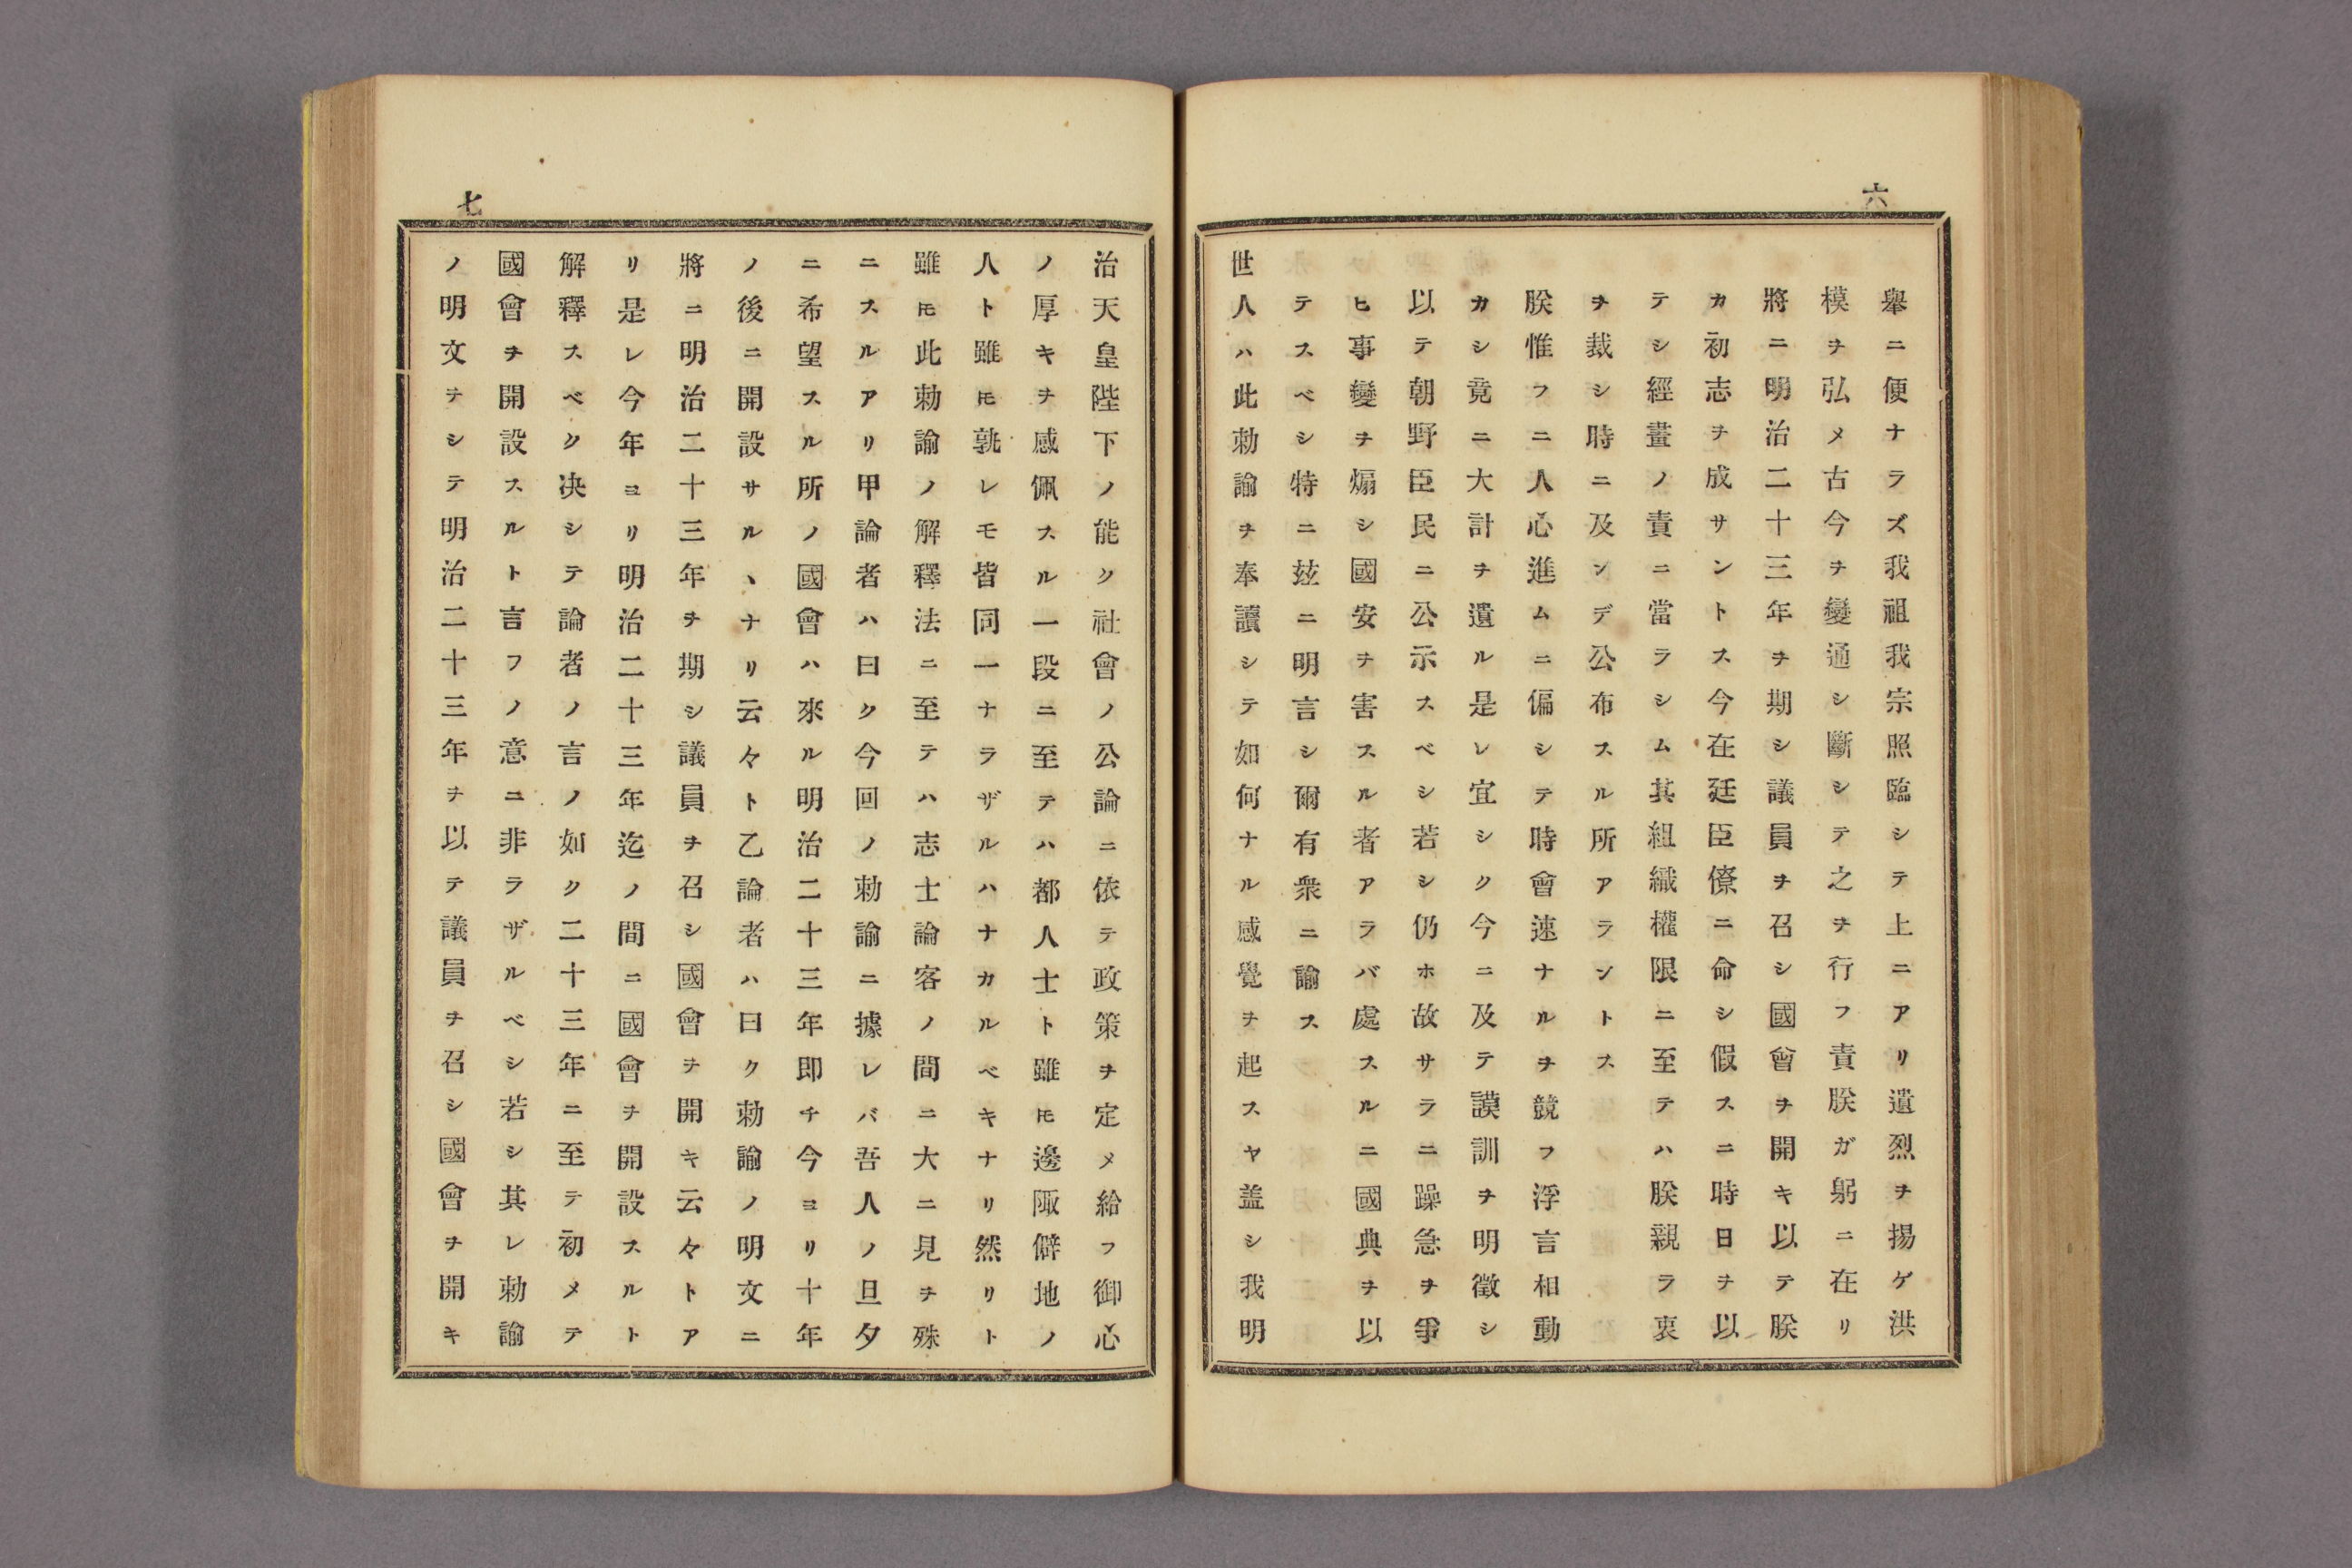 六
舉ニ便ナラズ我祖我宗照臨シテ上ニアリ遺烈ヲ揚ゲ洪
模ヲ弘メ古今ヲ變通シ斷シテ之ヲ行フ責朕ガ躬ニ在リ
將ニ明治二十三年ヲ期シ議員ヲ召シ國會ヲ開キ以テ朕
カ初志ヲ成サントス今在廷臣僚ニ命シ假スニ時日ヲ以
テシ經畫ノ責ニ當ラシム其組織權限ニ至テハ朕親ラ衷
ヲ裁シ時ニ及ンデ公布スル所アラントス
朕惟フニ人心進ムニ偏シテ時會速ナルヲ競フ浮言相動
カシ竟ニ大計ヲ遺ル是レ宜シク今ニ及テ謨訓ヲ明徵シ
以テ朝野臣民ニ公示スベシ若シ仍ホ故サラニ躁急ヲ爭
ヒ事變ヲ煽シ國安ヲ害スル者アラバ處スルニ國典ヲ以
テスベシ特ニ玆ニ明言シ爾有衆ニ諭ス
世人ハ此勅諭ヲ奉讀シテ如何ナル感覺ヲ起スヤ盖シ我明
七
治天皇陛下ノ能ク社會ノ公論ニ依テ政策ヲ定メ給フ御心
ノ厚キヲ感佩スル一段ニ至テハ都人士ト雖モ邊陬僻地ノ
人ト雖モ孰レモ皆同一ナラザルハナカルベキナリ然リト
雖モ此勅諭ノ解釋法ニ至テハ志士論客ノ間ニ大ニ見ヲ殊
ニスルアリ甲論者ハ曰ク今回ノ勅諭ニ據レバ吾人ノ旦夕
ニ希望スル所ノ國會ハ來ル明治二十三年即チ今ヨリ十年
ノ後ニ開設サルヽナリ云々ト乙論者ハ曰ク勅諭ノ明文ニ
將ニ明治二十三年ヲ期シ議員ヲ召シ國會ヲ開キ云々トア
リ是レ今年ヨリ明治二十三年迄ノ間ニ國會ヲ開設スルト
解釋スベク决シテ論者ノ言ノ如ク二十三年ニ至テ初メテ
國會ヲ開設スルト言フノ意ニ非ラザルベシ若シ其レ勅諭
ノ明文ヲシテ明治二十三年ヲ以テ議員ヲ召シ國會ヲ開キ